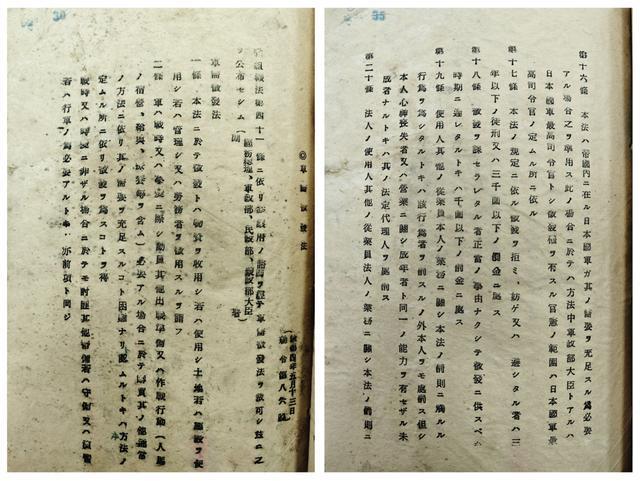 30
◎軍需徵發法
組織法第四十一條ニ依リ ヲ經テ軍需徵發法ヲ裁可シ茲ニ之
ヲ公布セシム
軍需徵發法
一條 本法ニ於テ徵發トハ物資ヲ收用シ若ハ使用シ土地若ハ ヲ使
用シ若ハ管理シ又ハ勞務者ヲ使用スルヲ謂フ
二條 軍ハ戰時又ハ事變ニ際シ動員其他出戰準備又ハ作戰行動(人馬
ノ宿營、給與、 ヲ含ム)必要アル場合ニ於テ 其ノ他通常
ノ方法ニ依リ其ノ需要ヲ充足スルコト困難ナリト認ムルトキハ方法ノ
定ムル所ニ依リ徵發ヲ爲スコトヲ得
戰時又ハ事變ニ非ザル場合ニ於テモ討匪其他警備若ハ守備又ハ演習
若ハ行軍ノ爲必要アルトキ亦前項ト同ジ
35
第十六條 本法ハ帝國內ニ在ル日本國軍ガ其ノ需要ヲ充足スル爲必要
アル場合之ヲ準用ス此ノ場合ニ於テハ方法中軍政部大臣トアルハ
日本國軍最高司令官トシ徵發權ヲ有スル官憲ノ範圍ハ日本國軍最
高司令官ノ定ムル所ニ依ル
第十七條 本法ノ規定ニ依ル徵發ヲ拒ミ、妨ゲ又ハ 避シタル者ハ三
年以下ノ徒刑又ハ三千圓以下ノ罰金ニ處ス
第十八條 徵發ヲ課セラレタル者正當ノ事由ナクシテ徵發ニ供スベキ
時期ニ遲レタルトキハ千圓以下ノ罰金ニ處ス
第十九條 使用人其他ノ從業員本人ノ業務ニ關シ本法ノ罰則ニ觸ルル
行爲ヲ爲シタルトキハ該行爲者ヲ罰スルノ外本人ヲモ處罰ス但シ
本人心神喪失者又ハ營業ニ關シ成年者ト同一ノ能力ヲ有セザル未
成者ナルトキハ其ノ法定代理人ヲ處罰ス
第二十條 法人ノ使用人其他ノ從業員法人ノ業務ニ關シ本法ノ罰則ニ